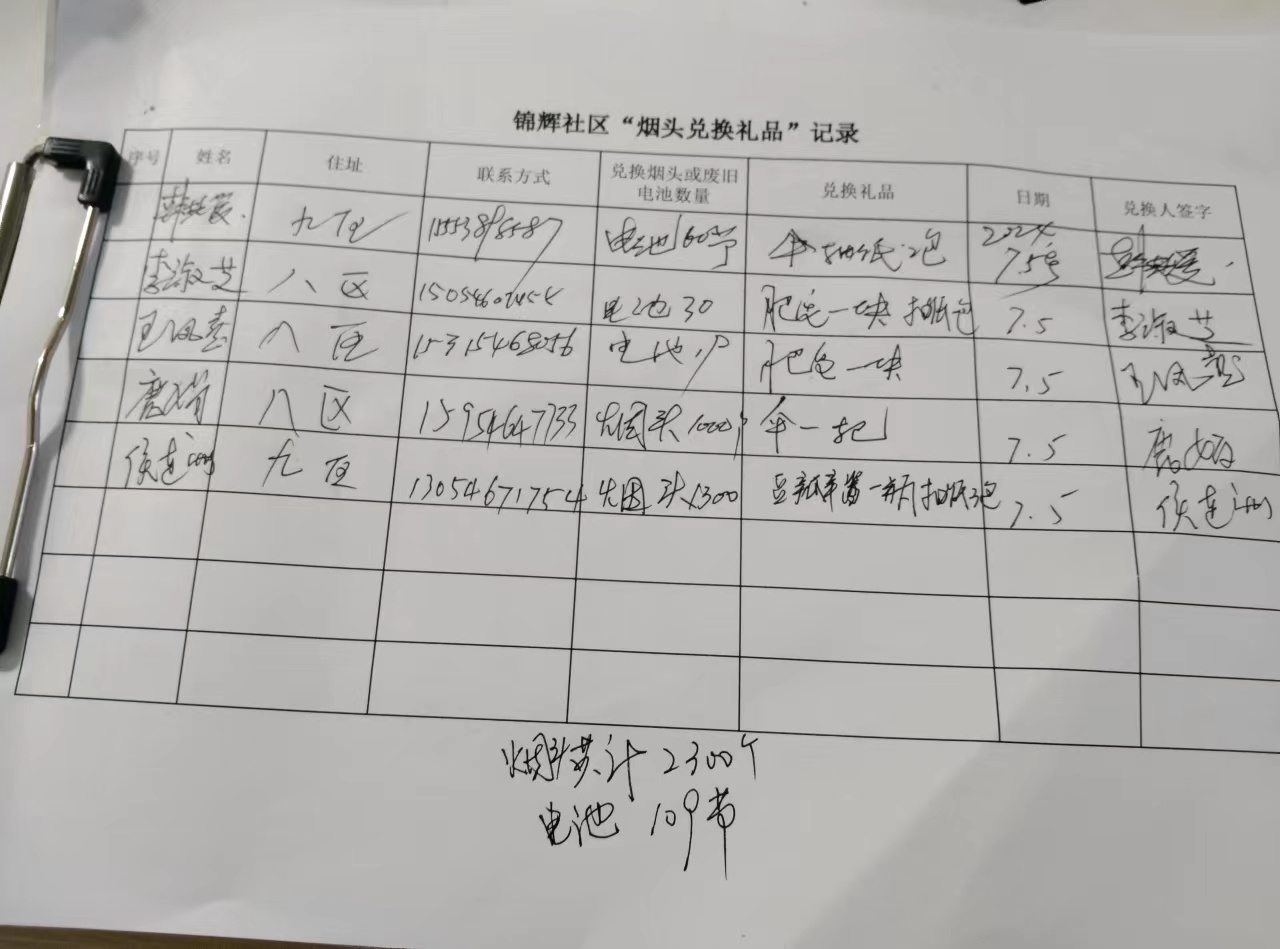 锦辉社区“烟头兑换礼品”记录
序号 姓名 住址 联系方式 兑换烟头或废旧电池数量 兑换礼品 日期 兑换人签字
九区 电池60节 抽纸2包 2024 7.5号
李淑芝 八区 电池30 肥皂一块 抽纸包 7.5 李淑芝
王凤喜 八区 15315468056 电池19 肥皂一块 7.5 王凤喜
八区 15954647733 烟头1000个 伞一把 7.5
侯连 九区 13054671754 烟头1300 豆瓣酱一瓶抽纸3包 7.5 侯连
烟头共计2300个
电池 109节